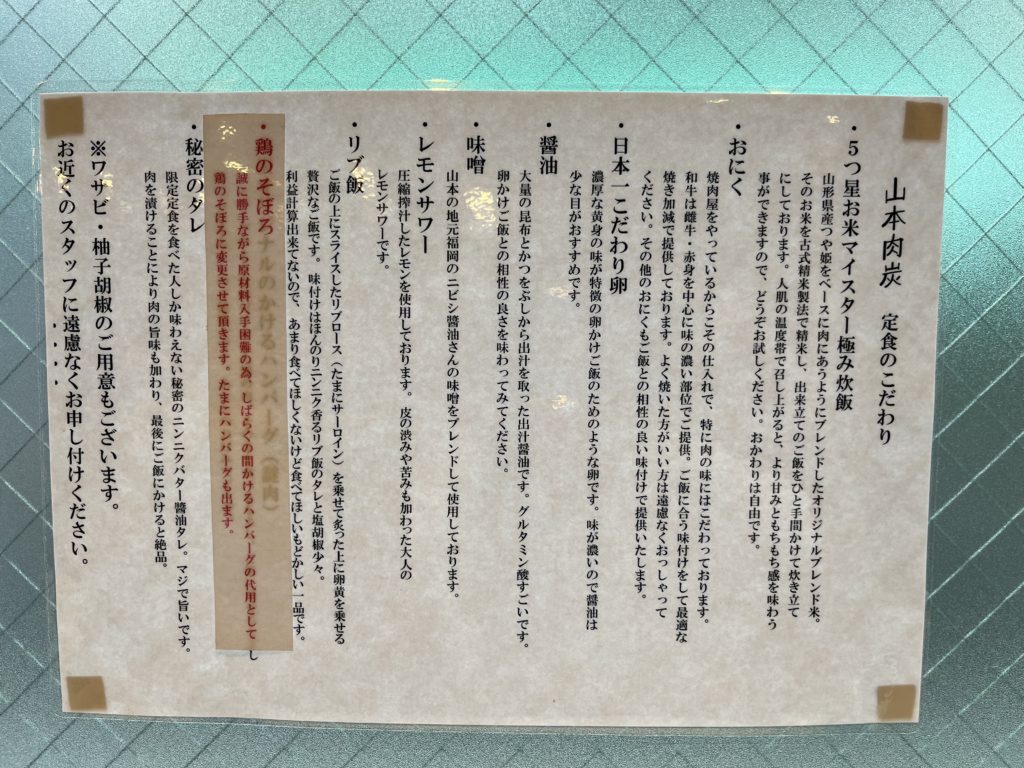 山本肉炭　定食のこだわり
・5つ星お米マイスター極み炊飯
山形県産つや姫をベースに肉にあうようにブレンドしたオリジナルブレンド米。
そのお米を古式精米製法で精米し、出来立てのご飯をひと手間かけて炊き立て
にしております。人肌の温度帯で召し上がると、より甘みともちもち感を味わう
事ができますので、どうぞお試しください。おかわりは自由です。
・おにく
焼肉屋をやっているからこその仕入れで、特に肉の味にはこだわっております。
和牛は雌牛・赤身を中心に味の濃い部位でご提供。ご飯に合う味付けをして最適な
焼き加減で提供しております。よく焼いた方がいい方は遠慮なくおっしゃって
ください。その他のおにくもご飯との相性の良い味付けで提供いたします。
・日本一こだわり卵
濃厚な黄身の味が特徴の卵かけご飯のためのような卵です。味が濃いので醤油は
少な目がおすすめです。
・醤油
大量の昆布とかつをぶしから出汁を取った出汁醤油です。グルタミン酸すごいです。
卵かけご飯との相性の良さを味わってみてください。
・味噌
山本の地元福岡のニビシ醤油さんの味噌をブレンドして使用しております。
・レモンサワー
圧縮搾汁したレモンを使用しております。皮の渋みや苦みも加わった大人の
レモンサワーです。
・リブ飯
ご飯の上にスライスしたリブロース（たまにサーロイン）を乗せて炙った上に卵黄を乗せる
贅沢なご飯です。味付けはほんのりニンニク香るリブ飯のタレと塩胡椒少々。
利益計算出来てないので、あまり食べてほしくないけど食べてほしいもどかしい一品です。
・鶏のそぼろ
誠に勝手ながら原材料入手困難の為、しばらくの間かけるハンバーグの代用として
鶏のそぼろに変更させて頂きます。たまにハンバーグも出ます。
・秘密のタレ
限定定食を食べた人しか味わえない秘密のニンニクバター醤油タレ。マジで旨いです。
肉を漬けることにより肉の旨味も加わり、最後にご飯にかけると絶品。
※ワサビ・柚子胡椒のご用意もございます。
お近くのスタッフに遠慮なくお申し付けください。